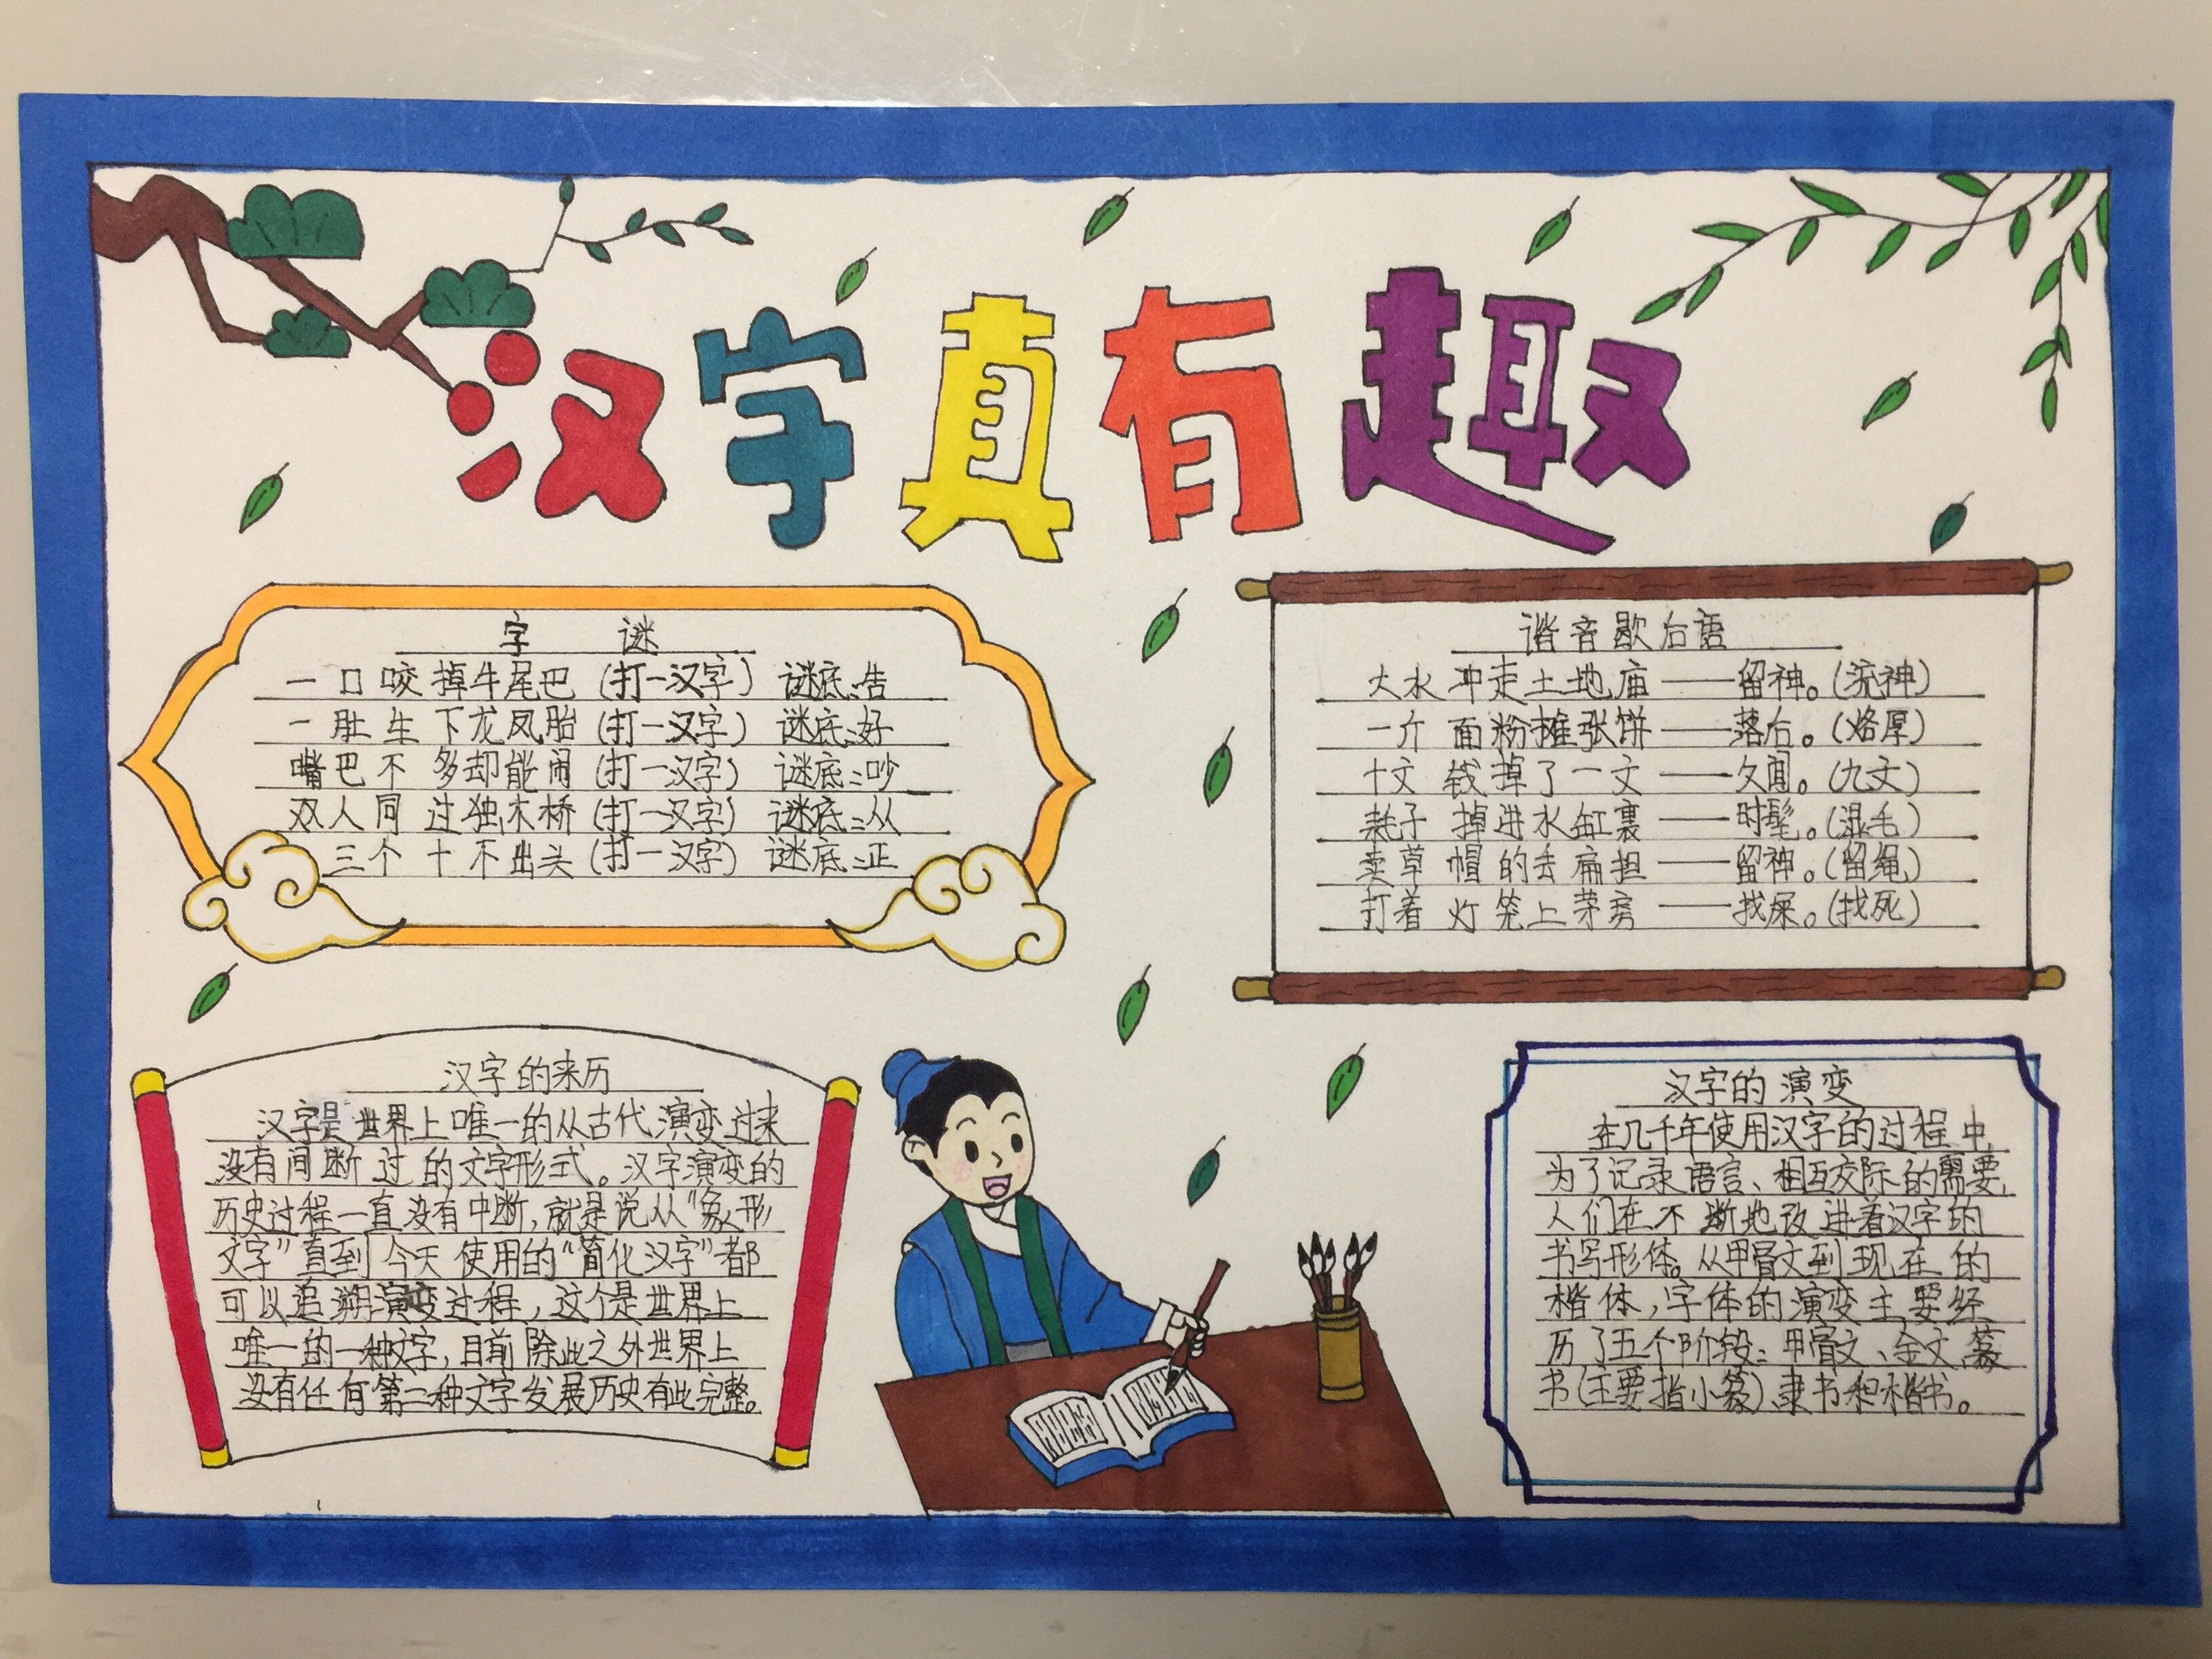 汉字真有趣
字 谜
一口咬掉牛尾巴(打一汉字) 谜底:告
一肚生下龙凤胎(打一汉字) 谜底:好
嘴巴不多却能闹(打一汉字) 谜底:吵
双人同过独木桥(打一汉字) 谜底:从
三个十不出头(打一汉字) 谜底:正
谐音歇后语
大水冲走土地庙——留神。(流神)
一斤面粉摊张饼——落后。(烙厚)
十文钱掉了一文——久闻。(九文)
耗子掉进水缸裏——时髦。(湿毛)
卖草帽的丢扁担——留神。(留绳)
打着灯笼上茅房——找屎。(找死)
汉字的来历
汉字是世界上唯一的从古代演变过来
没有间断过的文字形式。汉字演变的
历史过程一直没有中断,就是说从“象形
文字”直到今天使用的“简化汉字”都
可以追溯演变过程,这个是世界上
唯一的一种文字,目前除此之外世界上
没有任何第二种文字发展历史有此完整。
汉字的演变
在几千年使用汉字的过程中,
为了记录语言、相互交际的需要,
人们在不断地改进着汉字的
书写形体。从甲骨文到现在的
楷体,字体的演变主要经
历了五个阶段:甲骨文、金文、篆
书(主要指小篆)、隶书和楷书。